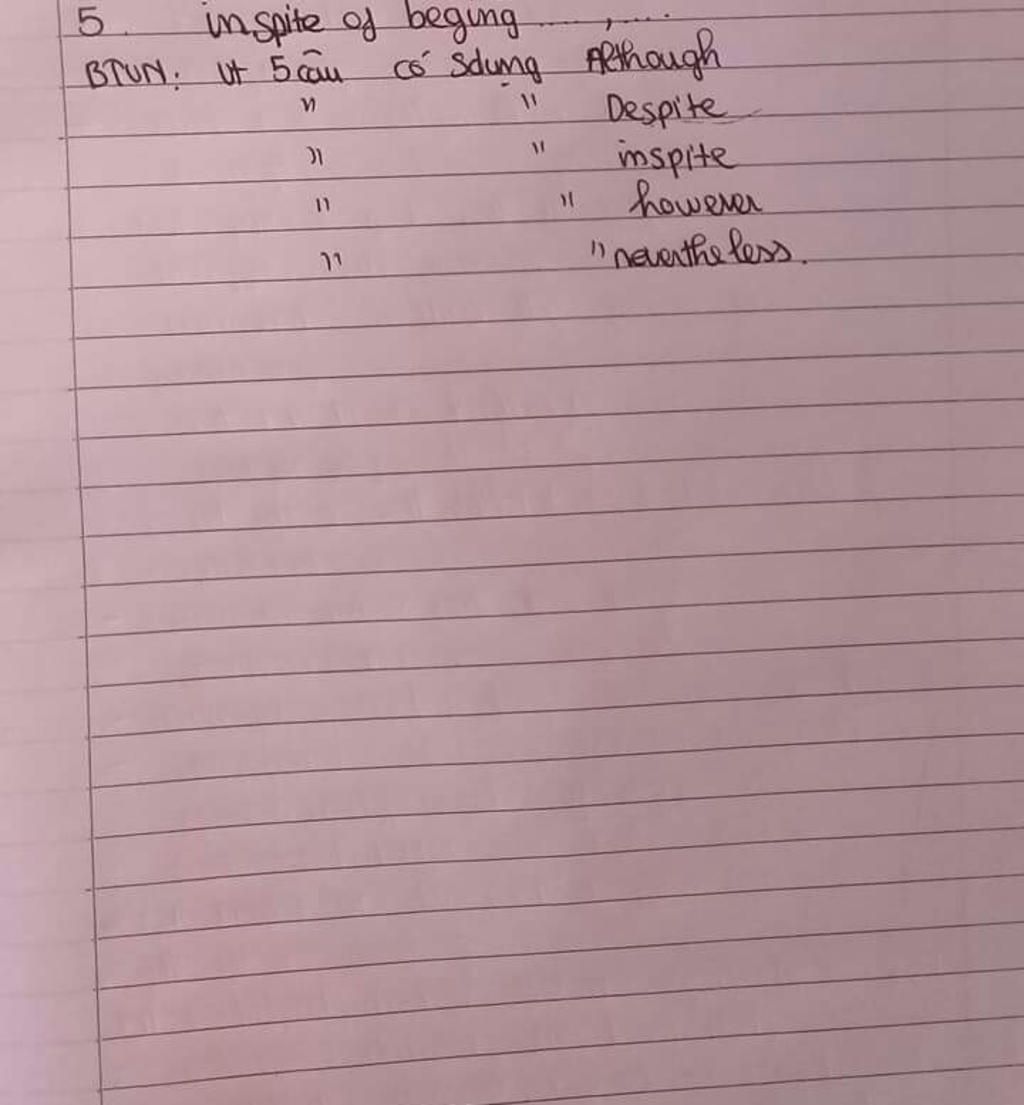 5. inspite of beging ....., .....
BTVN: Vt 5 câu có sdụng Although
" " Despite
" " inspite
" " however
" " nevertheless.